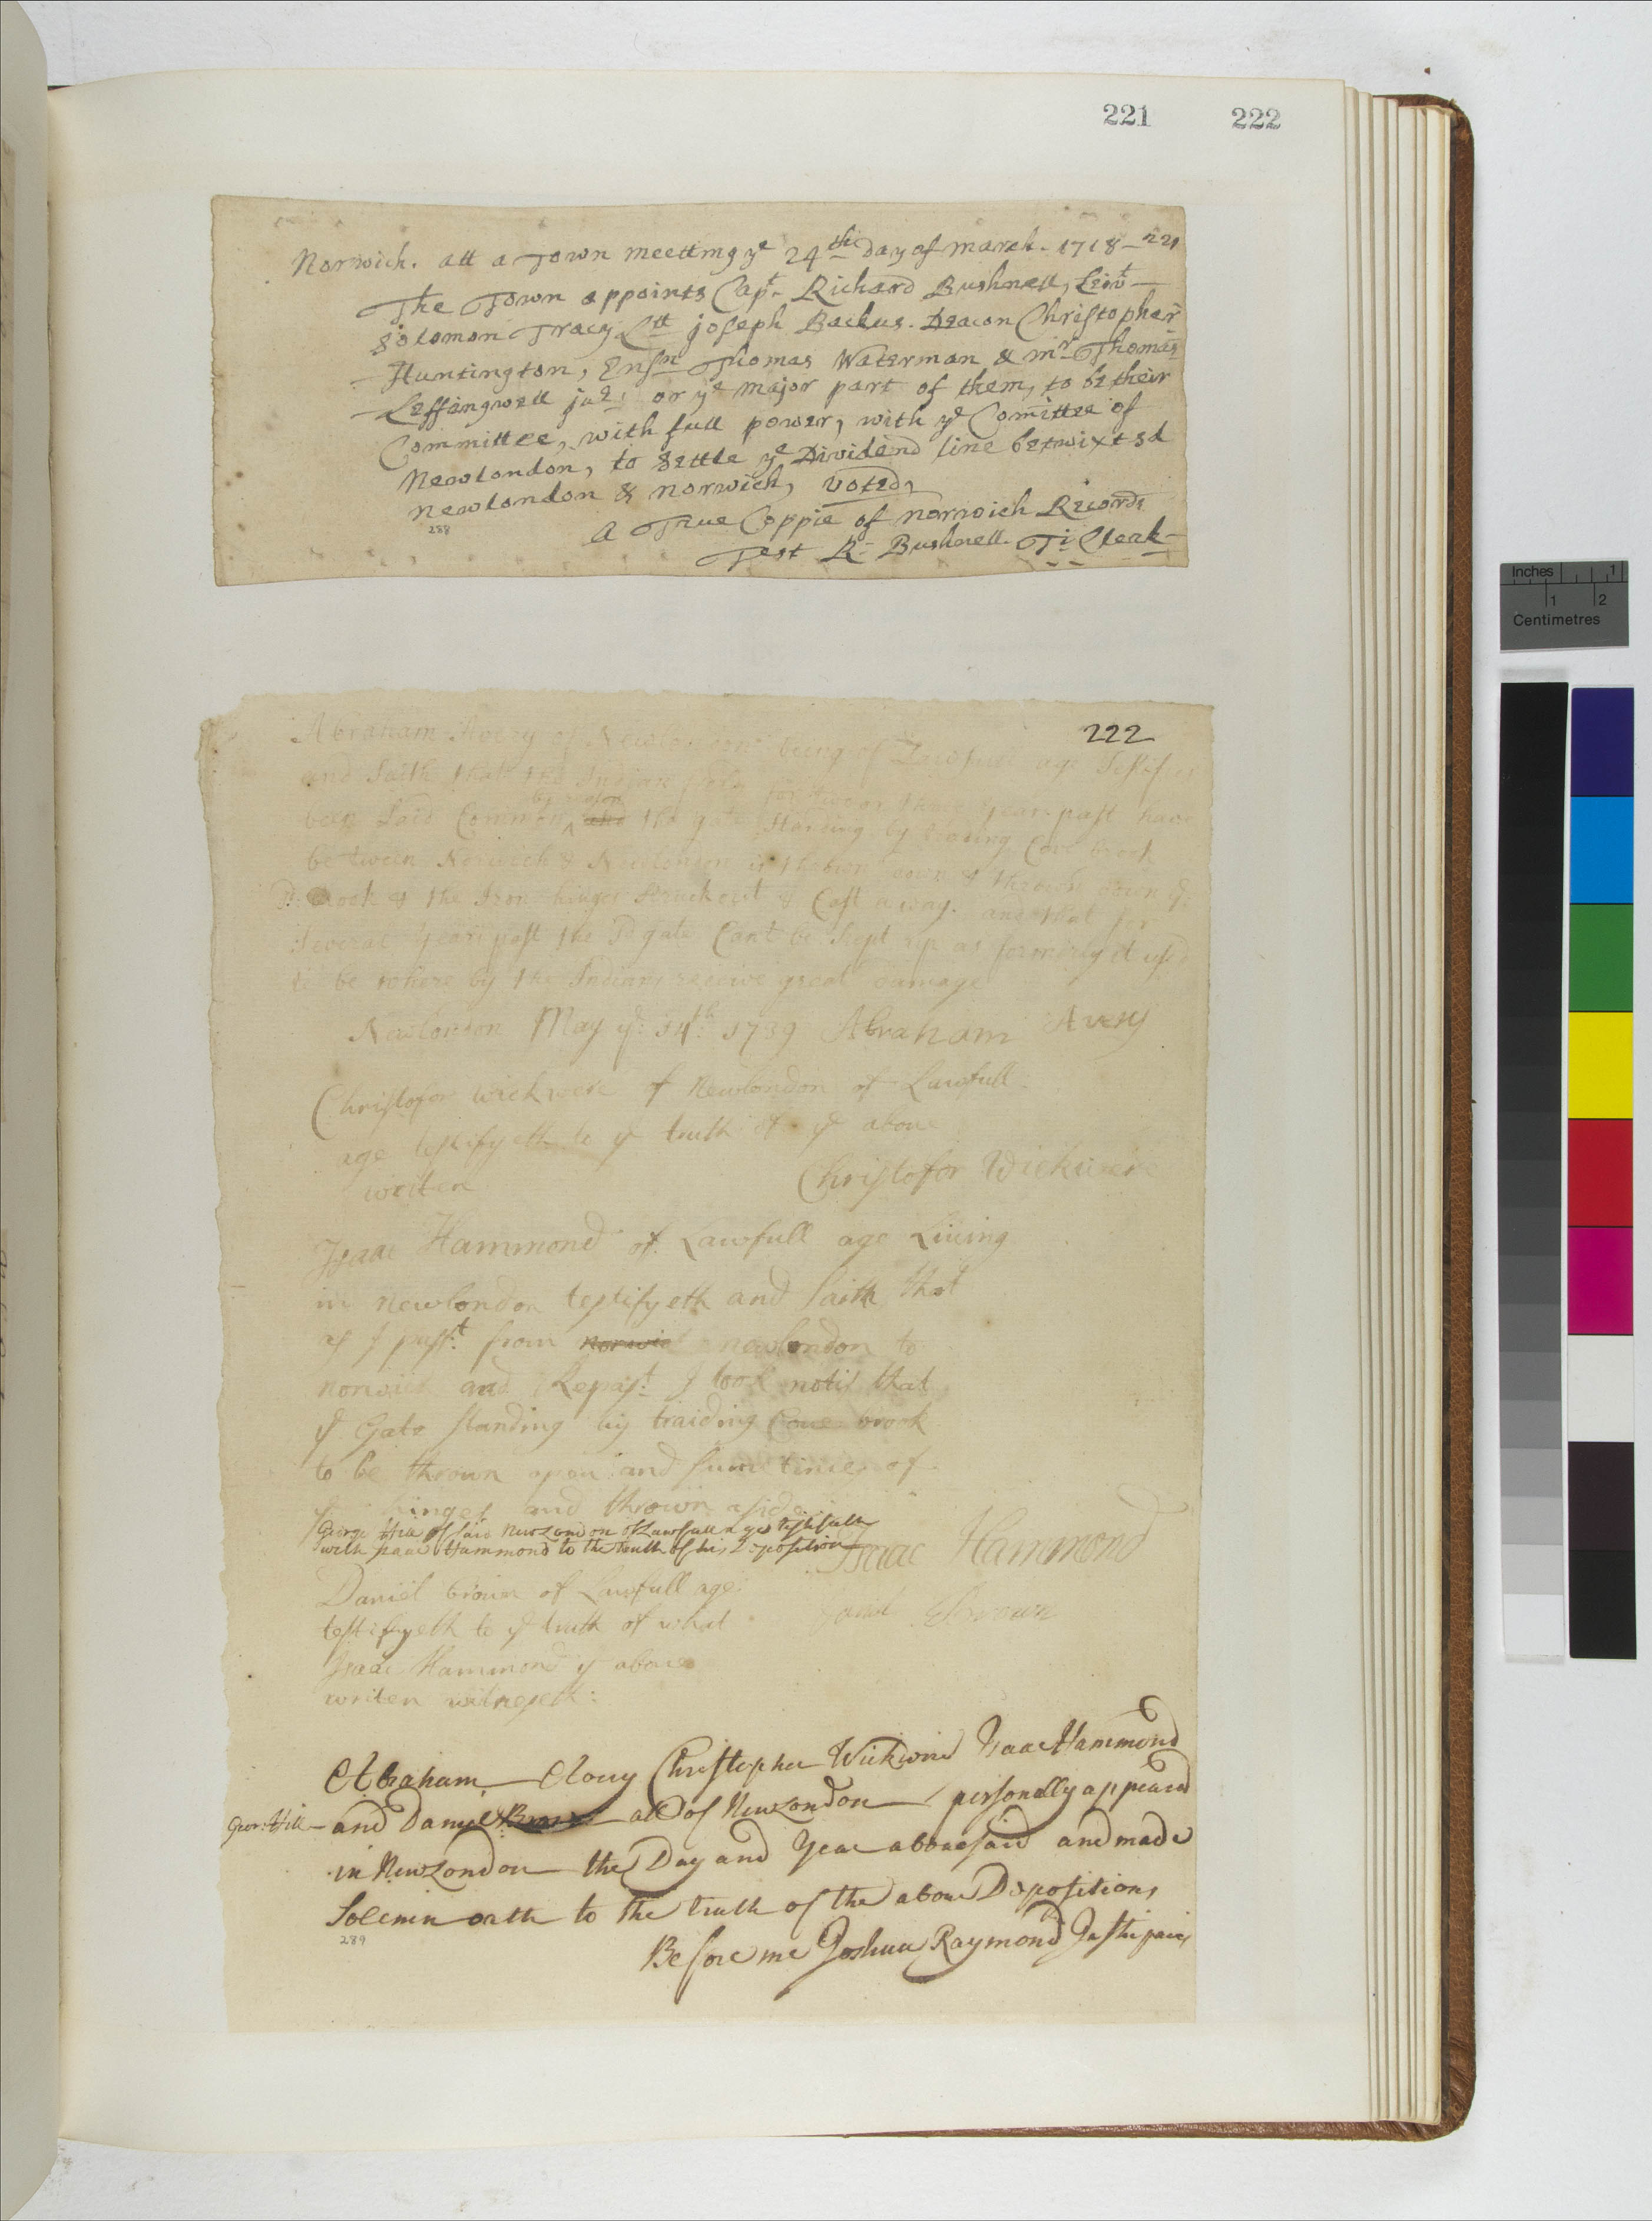 221 222
Norwich. att a Town meetting yᵉ 24th Day of march. 1718 — 221
The Town appoints Capt. Richard Bushnell, Leiut
Solomon Tracy Ltt joseph Backus. Deacon Christopher
Huntington, Ensn Thomas Waterman & mr Thomas
Leffingwell jue: or yᵉ major part of them, to be their
Committee, with full power, with yᵉ Comittee of
Newlondon, to settle yᵉ Dividend line betwixt sd
newlondon & norwich, voted,
288
A True Coppie of norwich Records
Test R: Bushnell. T: Clerk
222
Abraham Avery of Newlondon being of Lawfull age Testifies
and Saith that the Indian for two or three years past have
been Laid Common by reason and the gate standing by trading Cove brook
between Norwich & Newlondon is thrown down & thrown down yᵉ
the Iron hinges Struck out & Cast away. and that for
Several years past the Sd gate Cant be Kept up as formerly it used
to be where by the Indians receive great Damage
Newlondon May yᵉ 14th: 1739 Abraham Avery
Christofor Wickwere of Newlondon of Lawfull
age testifyeth to yᵉ truth of yᵉ above
writen
Christofor Wickwere
Isaac Hammond of Lawfull age Living
in newlondon testifyeth and Saith that
as I passt from norwict newlondon to
norwict and Repast I took notis that
yᵉ Gate standing by traiding Cove brook
to be thrown open and sume times of
yᵉ hinges and thrown aside
George Hill of said NewLondon of Lawfull age testifieth
with Isaac Hammond to the truth of his Deposition
Isaac Hammond
Daniel brown of Lawfull age
testifyeth to yᵉ truth of what
Daniel Brown
Isaac Hammond yᵉ above
writen witneseth:
Abraham Avery Christopher Wickwire Isaac Hammond
Geor: Hill and Daniel Brown all of NewLondon personally appeared
in NewLondon the Day and Year abovesaid and made
Solemn oath to the truth of the above Depositions
289
Before me Joshua Raymond Justis pace